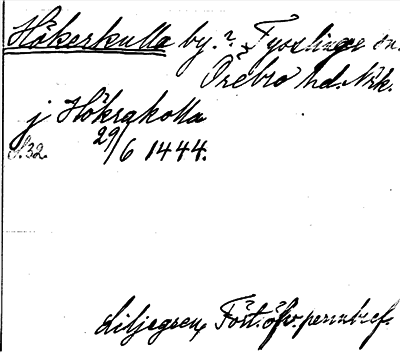 Hökerkulla by.? Tysslinge sn.
Örebro hd. Nrk.
j Hökrakolla
S. 32. 29/6 1444.
Liljegren, Fört. öfv. permbref.